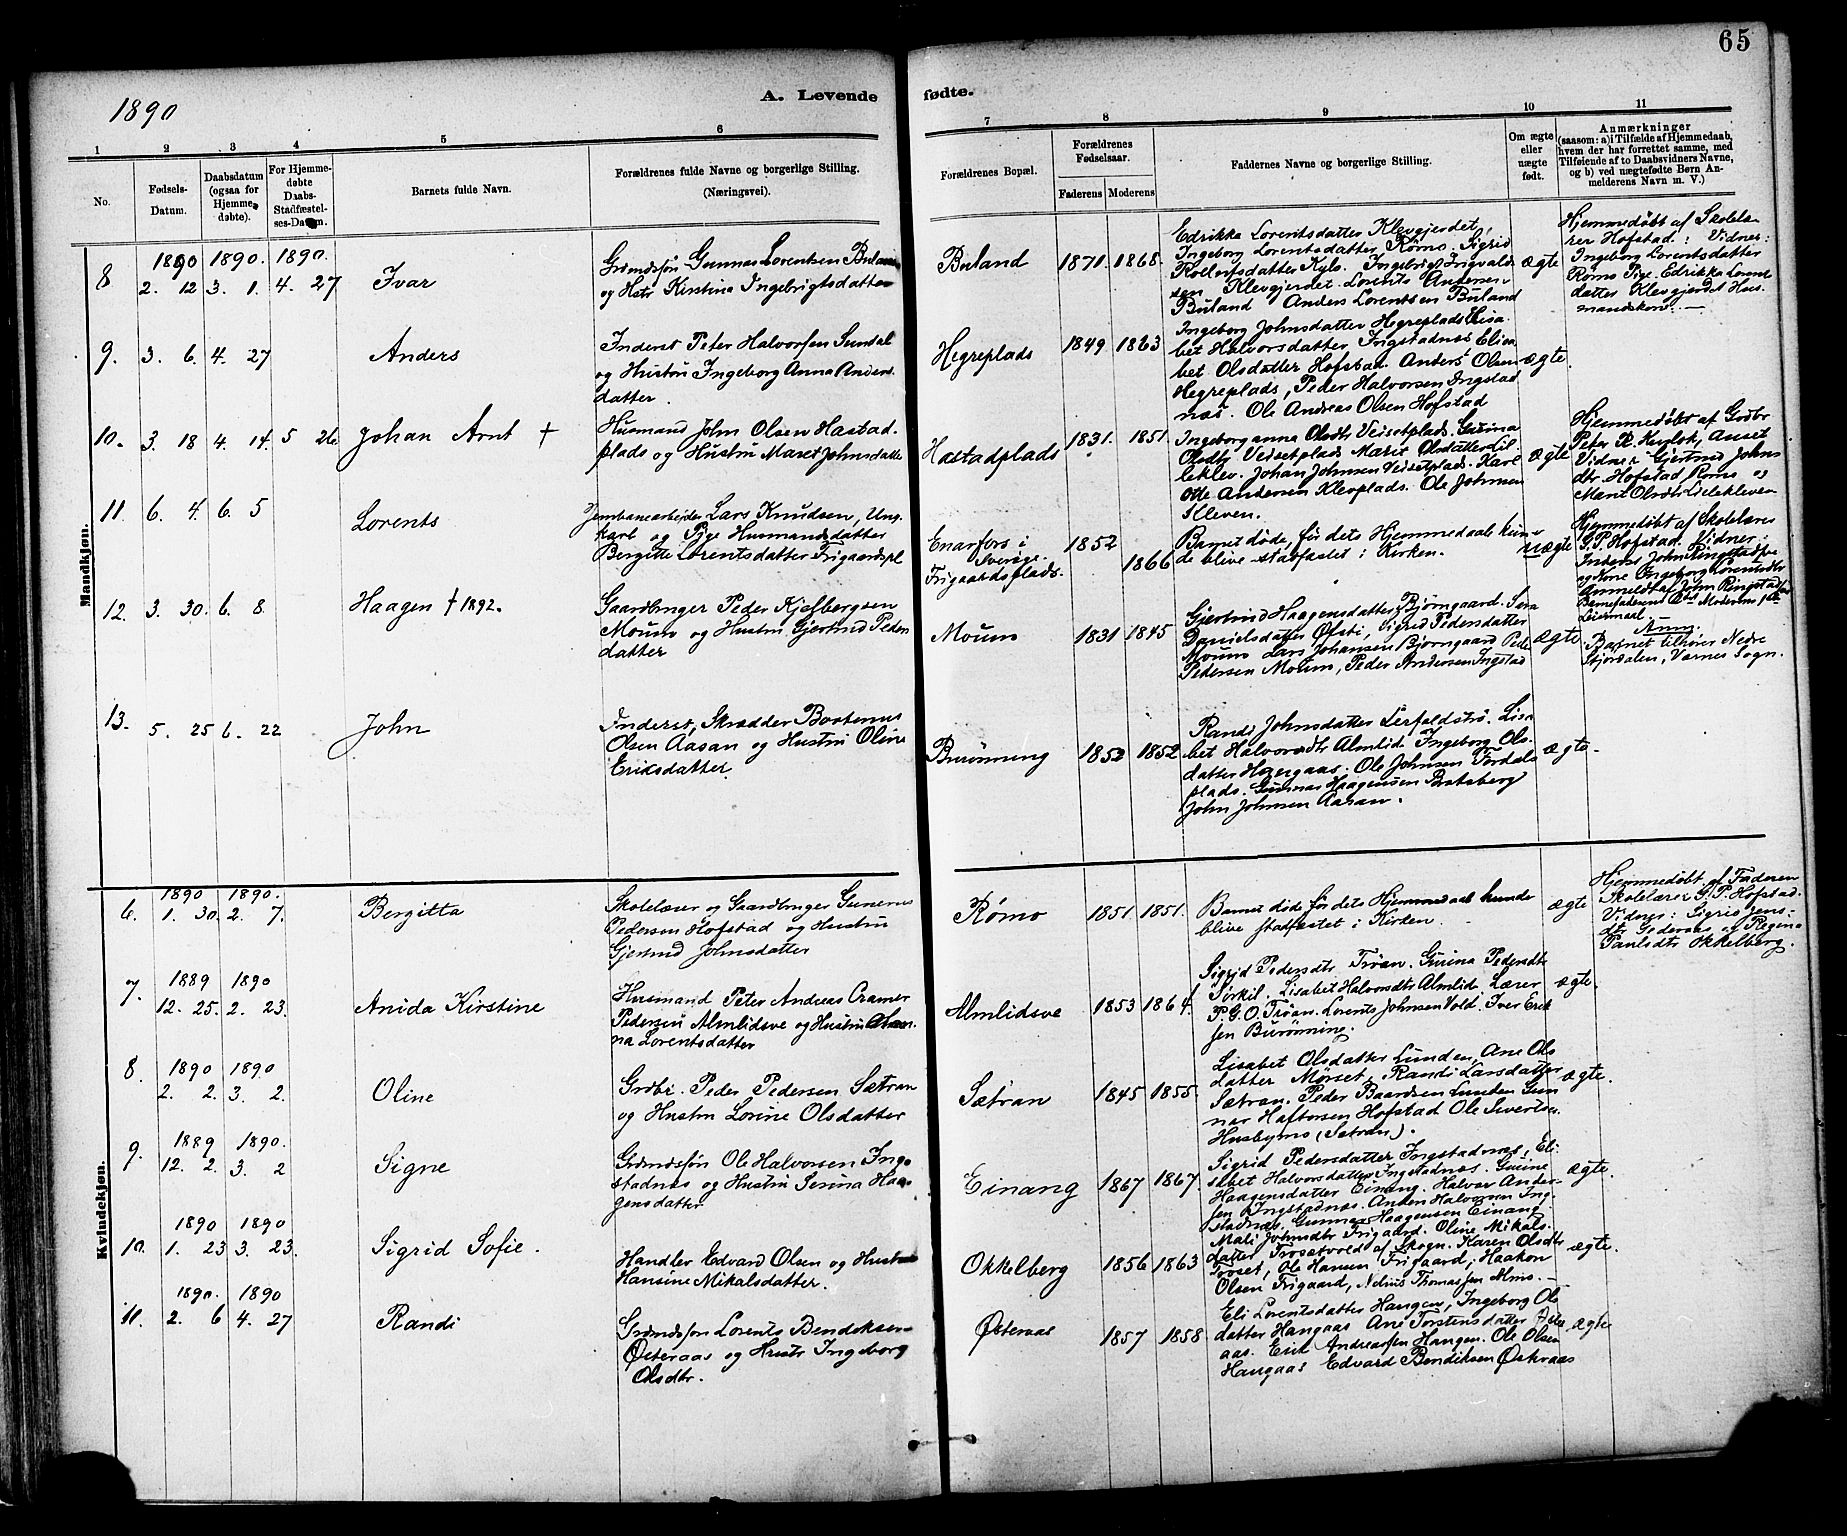 65
1890
A. Levende
fødte.
1 2 3 4 5 6
7 8 9 10 11
No.
Fødsels-
Datum.
Daabsdatum
(ogsaa for
Hjemme-
døbte).
For Hjemme-
døbte
Daabs-
Stadfæstel-
ses-Datum.
Barnets fulde Navn.
Forældrenes fulde Navne og borgerlige Stilling.
(Næringsvei).
Forældrenes Bopæl.
Forældrenes
Fødselsaar.
Faderens Moderens
Faddernes Navne og borgerlige Stilling.
Om ægte
eller
uægte
født.
Anmærkninger
(saasom: a) i Tilfælde af Hjemmedaab,
hvem der har forrettet samme, med
Tilføiende af to Daabsvidners Navne,
og b) ved uægtefødte Børn An-
melderens Navn m. V.)
Mandkjøn.
8. 1890 2. 12 1890. 3. 1. 1890. 4. 27
Ivar
Grdmdssøn Gunnar Lorentsen Buland
og Hstr Kirstina Ingebrigtsdatter
Buland
1871. 1868.
Edrikka Lorentsdatter Klevgjerdet,
Ingeborg Lorentsdatter Rømo. Sigrid
Rollofsdatter Kylo. Ingebrigt Trigvald
sen Klevgjerdet. Lorents Andersen
Buland Anders Lorentsen Buland
ægte
Hjemmedøbt af Skolelæ-
rer Hofstad: Vidner:
Ingeborg Lorentsdatter
Rømo Pige. Edrikka Lorents
datter Klevgjerdet Hus-
mandskone.
9. 3. 6. 4. 27
Anders
Inderst Peter Halvorsen Sundal
og Hustru Ingeborg Anna Anders-
datter.
Hegreplads
1849 1863
Ingeborg Johnsdatter Hegreplads Elisa-
bet Halvorsdatter Ingstadnæs Elisa
bet Olsdatter Hofstad. Anders Olsen
Hegreplads, Peder Halvorsen Ingstad
næs. Ole Andreas Olsen Hofstad
ægte.
10. 3. 18 4. 14. 5 26
Johan Arnt †
Husmand John Olsen Hastad-
plads og Hustru Maret Johnsdatter
Hastadplads
1831. 1851.
Ingeborganna Olsdtr Vedsetplads. Gurina
Olsdtr Vedsetplads Marit Olsdatter Lil
leklev. Johan Johnsen Vedsetplads. Karl
Otte Andersen Klevplads. Ole Johnsen
Illeven.
ægte
Hjemmedøbt af Grdbr
Vidner Gjertrud Johns
dtr. Hofstad Rømo og
Marit Olsdtr Lilleklev
11. 6. 4. 6. 5
Lorents
Jernbanearbejder Lars Knudsen, Ung-
karl og Pige Husmandsdatter
Bergitte Lorentsdatter Frigaardspl
Enarfors i
Sverige.
Frigaardsplads.
1852
1866
Barnet døde, før dets Hjemmedaab kun-
de blive stadfæstet i Kirken.
uægte
Hjemmedøbt af Skolelærer
G. P. Hofstad. Vidner:
Inderst John Ringstadpl
og Kone Ingeborg Lorentsdtr
Anmeldt af John Ringstadpl
Leiermaal.
12. 3. 30. 6. 8
Haagen † 1892.
Gaardbruger Peder Kjelbergsen
Moum og Hustru Gjertrud Peders
datter
Moum
1831 1845
Gjertrud Haagensdatter Bjørngaard. Sara
Danielsdatter Øfsti, Sigrid Pedersdatter
Moum Lars Johansen Bjørngaard Peder
Pedersen Moum, Peder Andersen Ingstad
ægte.
Anm.
Barnet tilhører Nedre
Stjørdalen, Værnes Sogn.
13. 5. 25 6. 22
John
Inderst, Skrædder
Olsen Aasan og Hustru Oline
Eriksdatter
Burønning
1852 1852
Randi Johnsdatter Lerfaldstrø. Lisa
bet Halvorsdtr Almlid. Ingeborg Ols-
datter Haugaas. Ole Johnsen Tørdals
plads. Gunnar Haagensen Bratsberg
John Johnsen Aasan.
ægte.
Kvindekjøn.
6. 1890 1. 30. 1890. 2. 7.
Bergitta
Skolelærer og Gaardbruger Gunerius
Pedersen Hofstad og Hustru
Gjertrud Johnsdatter
Rømo
1851 1851.
Barnet døde før dets Hjemmedaab kunde
blive stadfæstet i Kirken.
ægte
Hjemmedøbt af Faderen
Skolelærer G. P. Hofstad.
Vidner: Sigrid Jens-
dtr Gederaas og Regina
Paulsdtr Okkelberg.
7. 1889 12. 25. 1890 2. 23.
Anida Kirstine
Husmand Peter Andreas Cramer
Pedersen Almlidsve og Hustru
na Lorentsdatter
Almlidsve
1853 1864.
Sigrid Pedersdtr Trøan. Gurina Pedersdtr
Tørkil. Lisabet Halvorsdtr Almlid. Lærer
P. G. O. Trøan. Lorents Johnsen Vold. Iver Erik
sen Burønning.
ægte.
8. 1890 2. 2. 1890 3. 2.
Oline
Grdbr. Peder Pedersen Sætran
og Hustru Lorine Olsdatter
Sætran
1845 1855.
Lisabet Olsdatter Lunden, Ane Ols
datter Mørset, Randi Larsdatter
Sætran. Peder Baardsen Lunden Gun
nar Haftorsen Hofstad Ole Sivertsen
Husbymo (Sætran).
ægte.
9. 1889 12. 2. 1890. 3. 2
Signe
Grdmdssøn Ole Halvorsen Ing-
stadnæs og Hustru Serina Haa-
gensdatter
Einang
1867 1867.
Sigrid Pedersdatter Ingstadnæs, Eli-
sabet Halvorsdatter Ingstadnæs. Gurine
Haagensdatter Einang. Halvor Ander-
sen Ingstadnæs. Anders Halvorsen Ing-
stadnæs. Gunnar Haagensen Einang
ægte.
10. 1890 1. 23 1890 3. 23.
Sigrid Sofie.
Handler Edvard Olsen og Hustru
Hansine Mikalsdatter.
Okkelberg
1856 1863
Mali Johnsdtr Frigaard. Oline Mikals-
datter Frosætvold af Skogn. Karen Olsdtr
Tyvset, Ole Hansen Frigaard, Haakon
Olsen Frigaard, Nelius Thomassen Almo.
ægte.
11. 1890. 2. 6 1890 4. 27
Randi
Grdmdssøn Lorents Bendiksen
Østeraas og Hustr Ingeborg
Olsdtr.
Østeraas
1857 1858
Eli Lorentsdatter Haugen, Ingeborg Ols
datter Haugaas Ane Torstensdatter Øster
aas. Erik Andreassen Haugen. Ole Olsen
Haugaas Edvard Bendiksen Østeraas
ægte